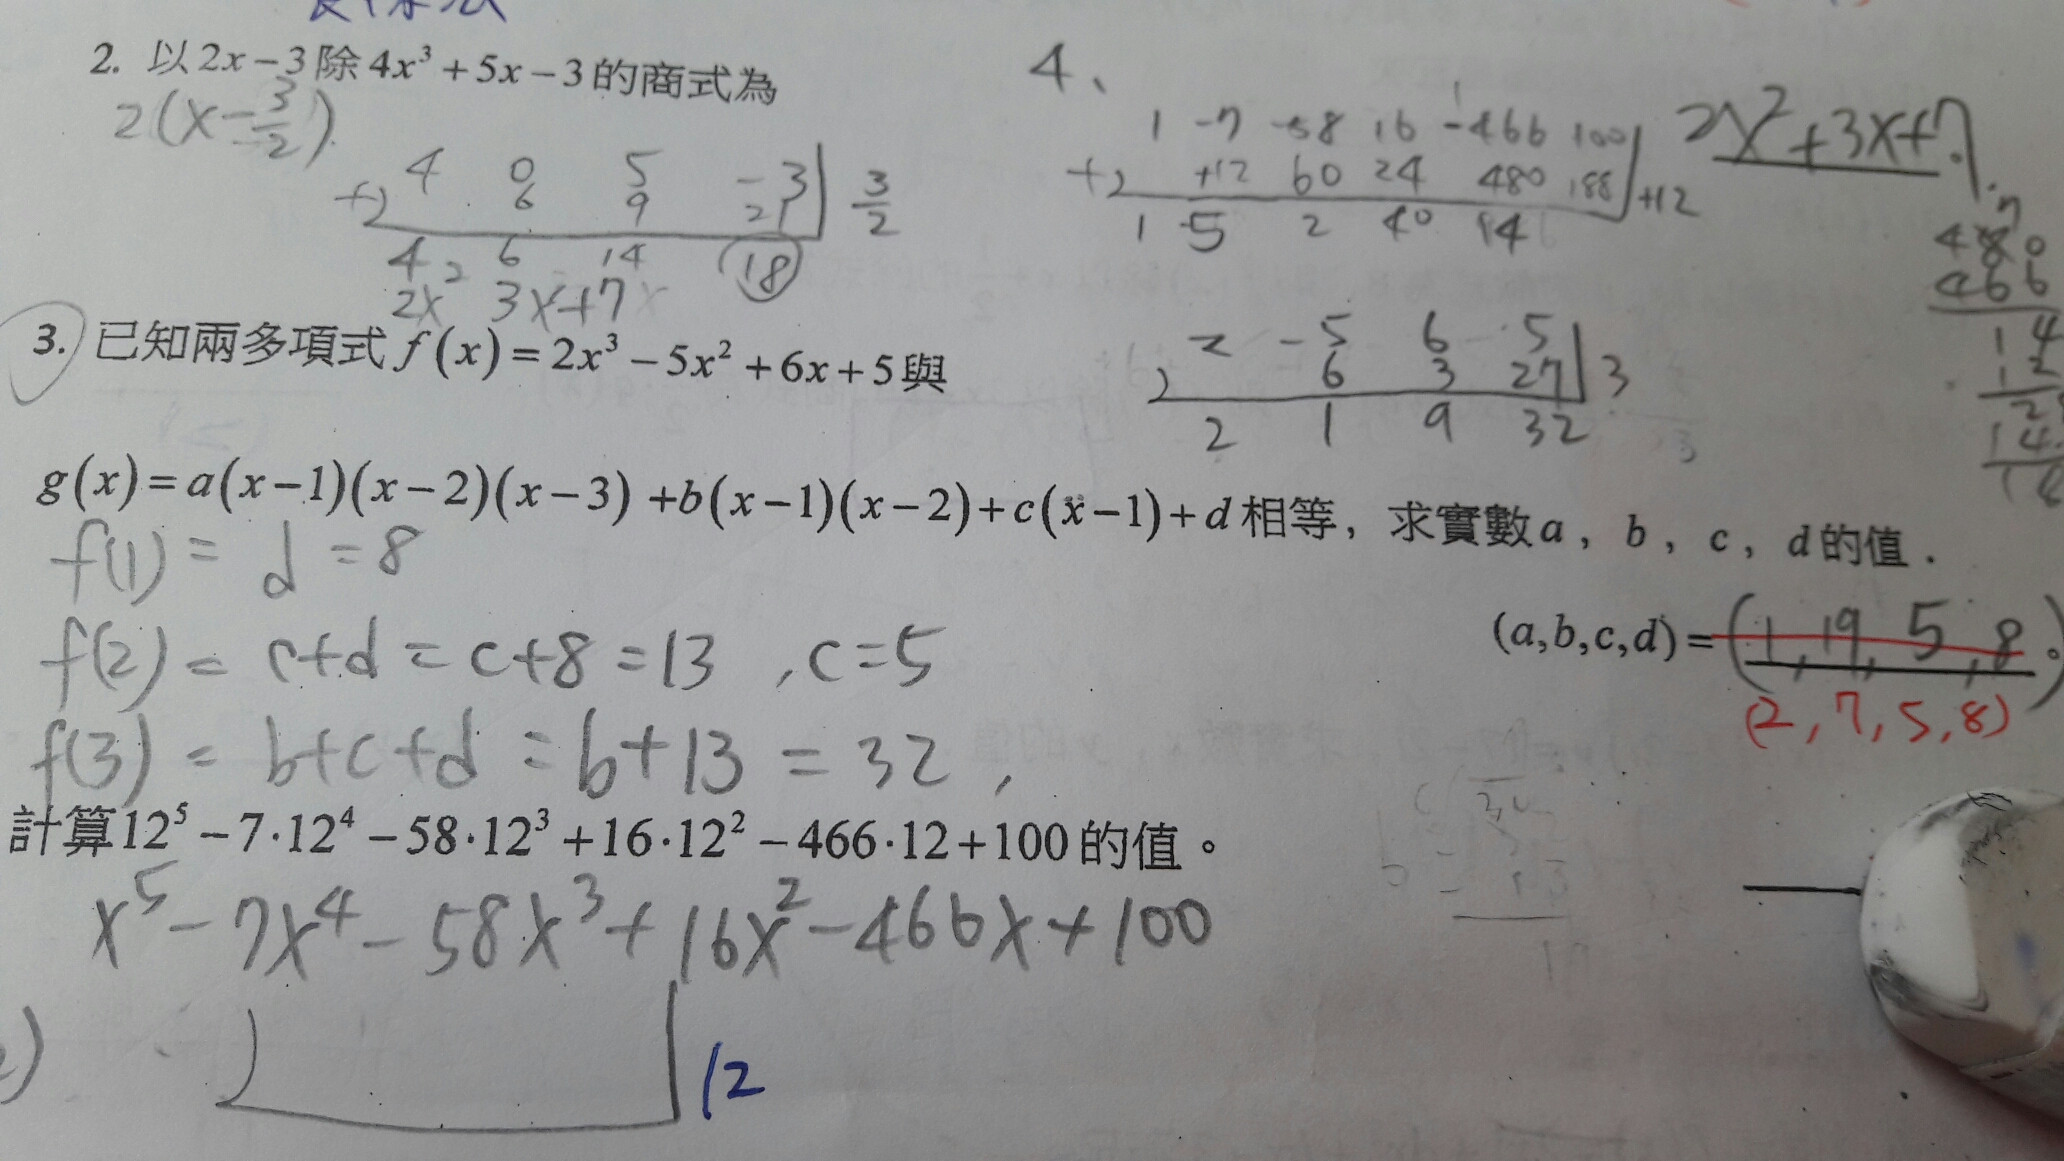 2. 以2x-3除4x³+5x-3的商式為
2(x-3/2)
4 0 5 -3 | 3/2
+) 6 9 21
4 6 14 18
2x² 3x+7
4、
1 -7 -58 16 -466 100
+) +12 60 24 480 188 | +12
1 5 2 40 14
2x²+3x+7.
480
466
14
3. 已知兩多項式f(x)=2x³-5x²+6x+5與
2 -5 6 5 | 3
) 6 3 27
2 1 9 32
g(x)=a(x-1)(x-2)(x-3)+b(x-1)(x-2)+c(x-1)+d相等，求實數a，b，c，d的值．
f(1)= d =8
f(2)= c+d = c+8 =13 , c=5
(a,b,c,d)=(1,19,5,8)。
(2,7,5,8)
f(3)= b+c+d = b+13 = 32 ,
計算12⁵-7·12⁴-58·12³+16·12²-466·12+100的值。
x⁵-7x⁴-58x³+16x²-466x+100
12